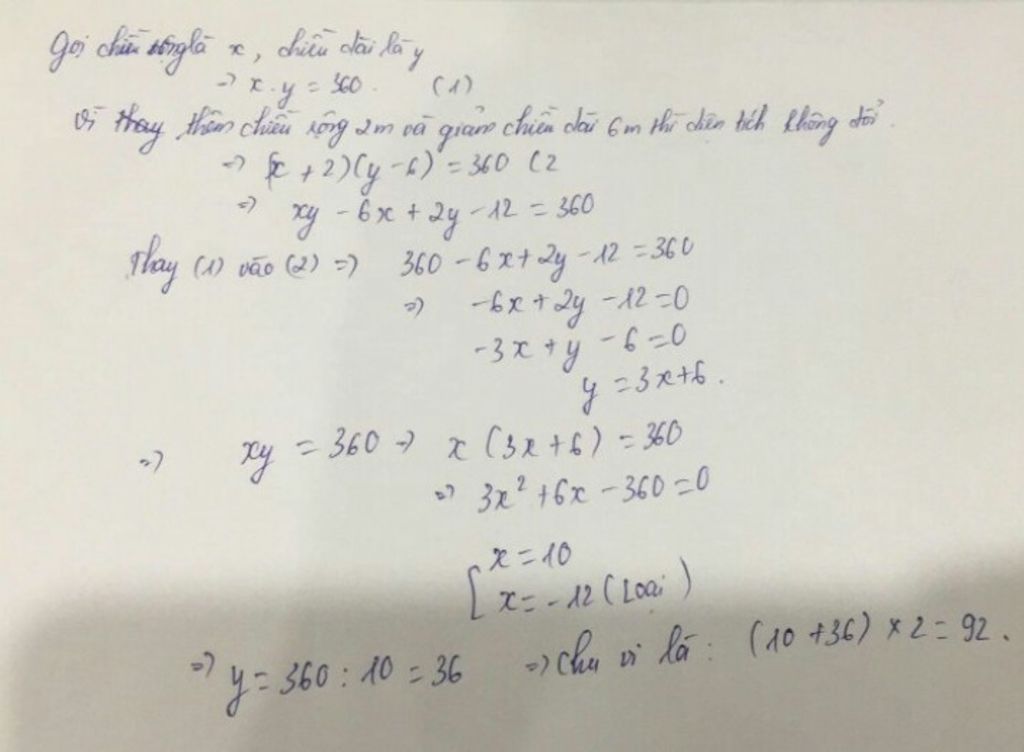 Gọi chiều rộng là x, chiều dài là y
=> x.y = 360. (1)
Vì thay thêm chiều rộng 2m và giảm chiều dài 6m thì diện tích không đổi.
=> (x + 2)(y - 6) = 360 (2
=> xy - 6x + 2y - 12 = 360
Thay (1) vào (2) => 360 - 6x + 2y - 12 = 360
=> -6x + 2y - 12 = 0
-3x + y - 6 = 0
y = 3x + 6.
=> xy = 360 => x (3x + 6) = 360
=> 3x² + 6x - 360 = 0
[ x = 10
x = -12 (Loại)
=> y = 360 : 10 = 36 => Chu vi là : (10 + 36) × 2 = 92.